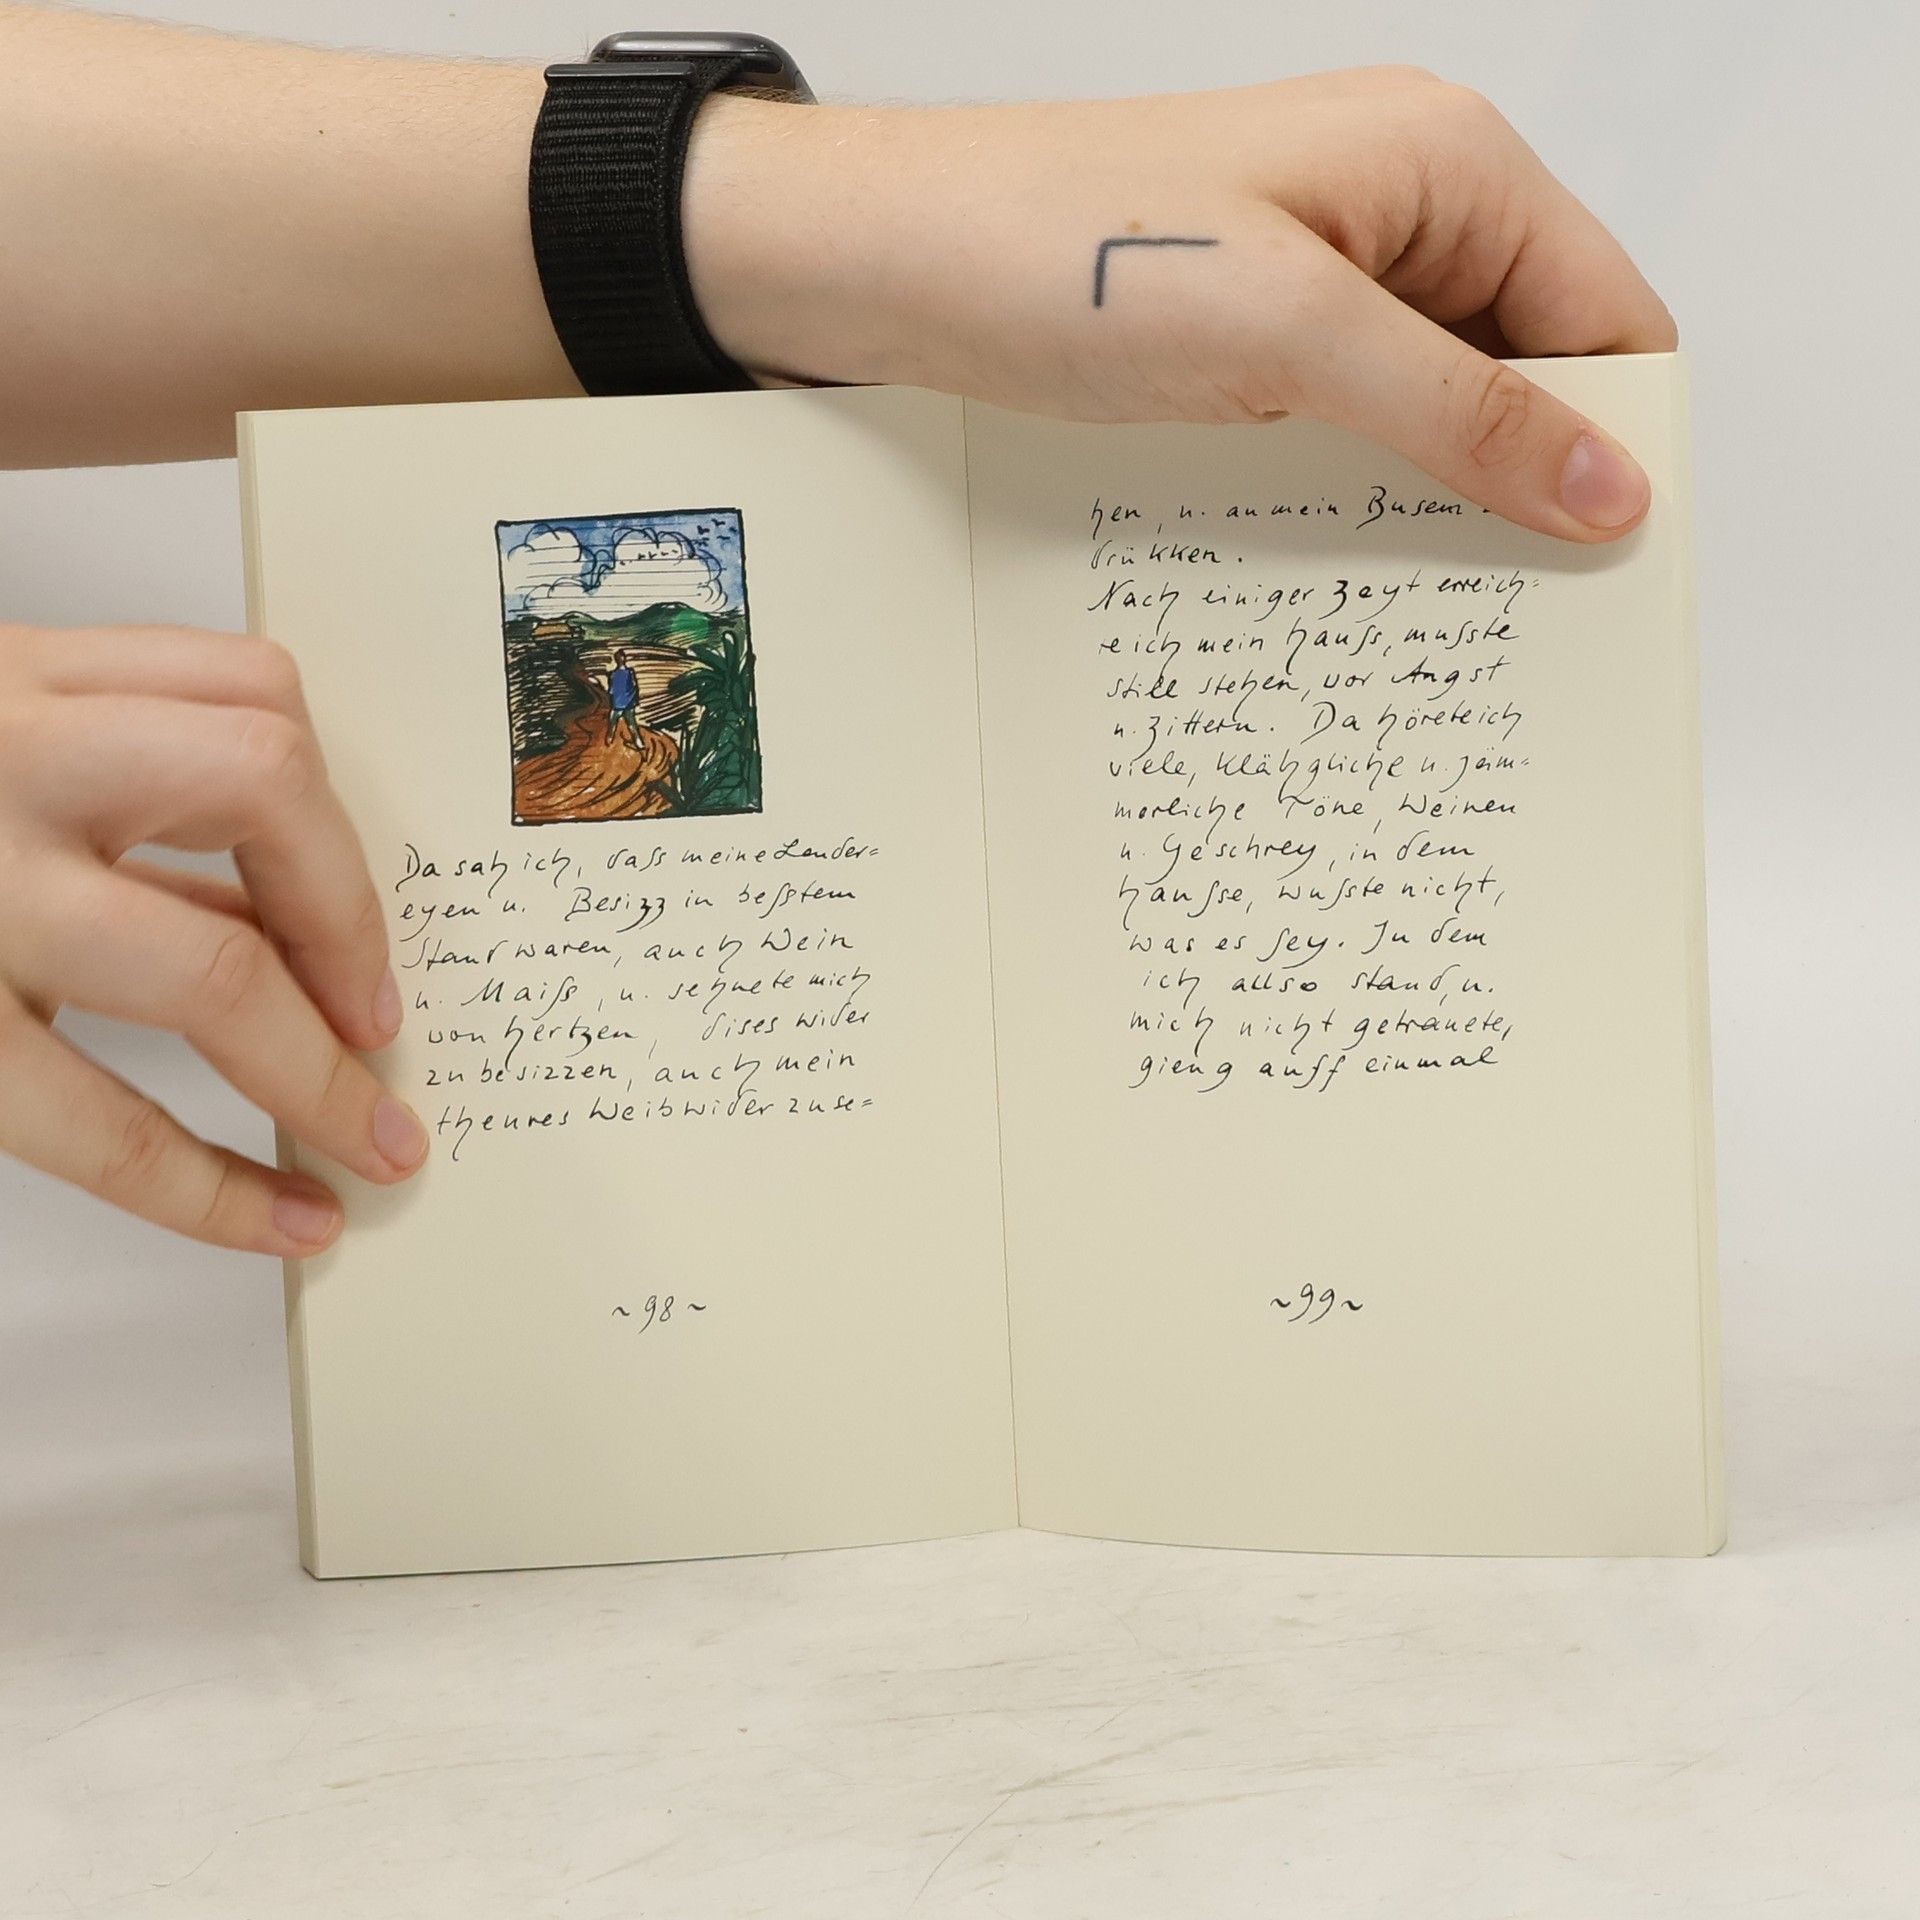 Da sah ich, daſs meine Lender=
eyen u. Besizz in beſstem
Stand waren, auch Wein
u. Maiſs, u. sehnete mich
von hertzen, dises wider
zu besizzen, auch mein
theures Weib wider zu se=
~98~
hen, u. an mein Busem
drükken.
Nach einiger Zeyt erreich=
te ich mein hauſs, muſste
still stehen, vor Angst
u. Zittern. Da hörete ich
viele, klähgliche u. jäm=
merliche Töne, Weinen
u. Geschrey, in dem
hauſse, wuſste nicht,
was es ſey. In dem
ich allso stand, u.
mich nicht getrauete,
gieng auff einmal
~99~